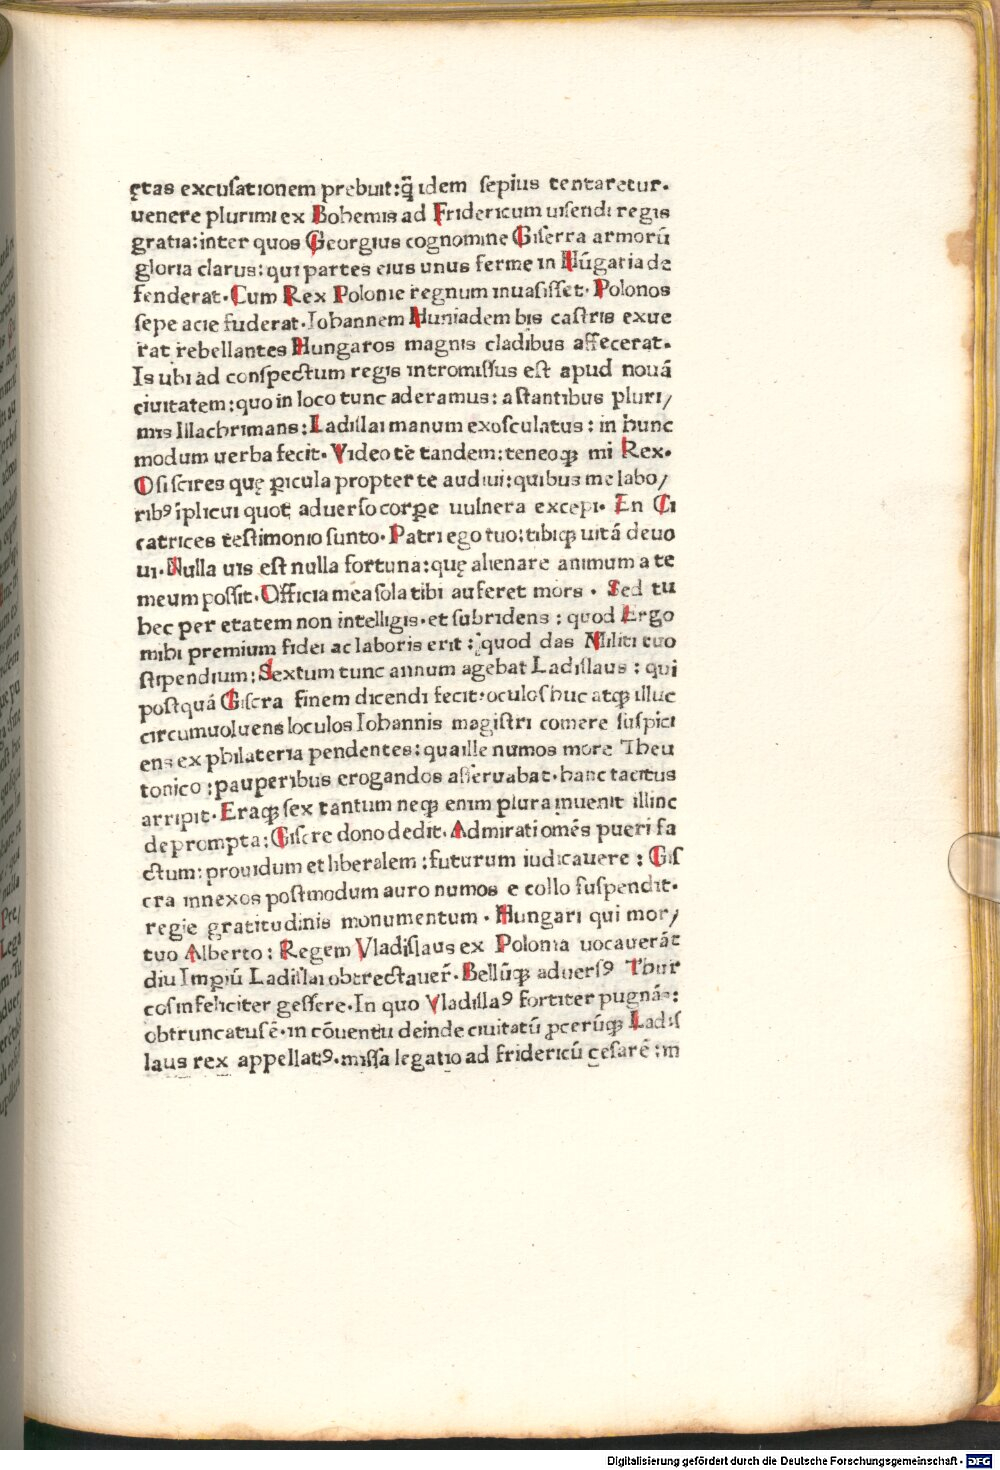 ętas excuſationem prebuit:q̃ idem ſepius tentaretur.
uenere plurimi ex Bohemis ad Fridericum uiſendi regis
gratia:inter quos Georgius cognomine Giſerra armorũ
gloria clarus:qui partes eius unus ferme in Hũgaria de
fenderat. Cum Rex Polonie regnum inuaſiſſet. Polonos
ſepe acie fuderat. Iohannem Huniadem bis caſtris exue
rat rebellantes Hungaros magnis cladibus affecerat.
Is ubi ad conſpectum regis intromiſſus eſt apud nouã
ciuitatem:quo in loco tunc aderamus: aſtantibus pluri/
mis Illachrimans:Ladiſlai manum exoſculatus: in hunc
modum uerba fecit. Video tẽ tandem:teneoqꝫ mi Rex.
O ſi ſcires quę ꝑicula propter te audiui:quibus me labo/
ribꝰ iplicui quot aduerſo corꝑe uulnera excepi. En Ci
catrices teſtimonio ſunto. Patri ego tuo:tibiqꝫ uitã deuo
ui. Nulla uis eſt nulla fortuna:quę alienare animum a te
meum poſſit. Officia mea ſola tibi auferet mors. Sed tu
hec per etatem non intelligis. et ſubridens: quod Ergo
mihi premium fidei ac laboris erit: quod das Militi tuo
ſtipendium: Sextum tunc annum agebat Ladiſlaus: qui
poſtquã Giſcra finem dicendi fecit: oculos huc atqꝫ illuc
circumuoluens loculos Iohannis magiſtri comere ſuſpici
ens ex philateria pendentes: qua ille numos more Theu
tonico: pauperibus erogandos aſſeruabat. hanc tacitus
arripit. Eraqꝫ ſex tantum neqꝫ enim plura inuenit illinc
deprompta: Giſcre dono dedit. Admirati omẽs pueri fa
ctum: prouidum et liberalem: futurum iudicauere: Giſ
cra innexos poſtmodum auro numos e collo ſuſpendit.
regie gratitudinis monumentum. Hungari qui mor/
tuo Alberto: Regem Vladiſlaus ex Polonia uocauerãt
diu Imꝑiũ Ladiſlai obtrectauer̃. Bellũqꝫ aduerſꝰ Thur
cos infeliciter geſſere. In quo Vladiſlaꝰ fortiter pugnãs:
obtruncatus ẽ. in cõuentu deinde ciuitatũ ꝓcerũqꝫ Ladiſ
laus rex appellatꝰ. miſſa legatio ad fridericũ ceſarẽ: in
Digitalisierung gefördert durch die Deutsche Forschungsgemeinschaft - DFG